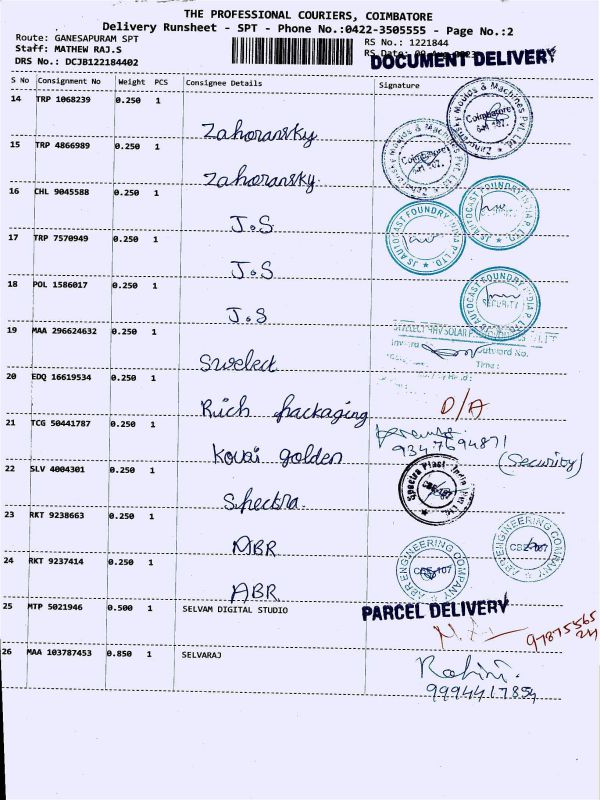 THE PROFESSIONAL COURIERS, COIMBATORE
Delivery Runsheet - SPT - Phone No.:0422-3505555 - Page No.:2
Route: GANESAPURAM SPT
RS No.: 1221844
Staff: MATHEW RAJ.S
RS Date:
DOCUMENT DELIVERY
DRS No.: DCJB122184402
S No Consignment No Weight PCS Consignee Details Signature
14 TRP 1068239 0.250 1
Zahoransky
Zahoransky Moulds & Machines Pvt. Ltd. Coimbatore
15 TRP 4866989 0.250 1
Zahoransky
Zahoransky Moulds & Machines Pvt. Ltd. Coimbatore
16 CHL 9045588 0.250 1
J.S
JS AUTOCAST FOUNDRY INDIA P LTD
17 TRP 7570949 0.250 1
J.S
JS AUTOCAST FOUNDRY INDIA P LTD
18 POL 1586017 0.250 1
J.S
JS AUTOCAST FOUNDRY INDIA P LTD SECURITY
19 MAA 296624632 0.250 1
Swelect
SOLAR
Inward Outward No.
Time:
20 EDQ 16619534 0.250 1
Rich packaging
D/A
21 TCG 50441787 0.250 1
Kovai golden
9347694871
(Security)
22 SLV 4004301 0.250 1
Spectra
Spectra Plast India Pvt Ltd.
23 RKT 9238663 0.250 1
ABR
ABR ENGINEERING COMPANY CBE-107
24 RKT 9237414 0.250 1
ABR
ABR ENGINEERING COMPANY CBE-107
25 MTP 5021946 0.500 1 SELVAM DIGITAL STUDIO
PARCEL DELIVERY
26 MAA 103787453 0.850 1 SELVARAJ
Rohini.
9994417854